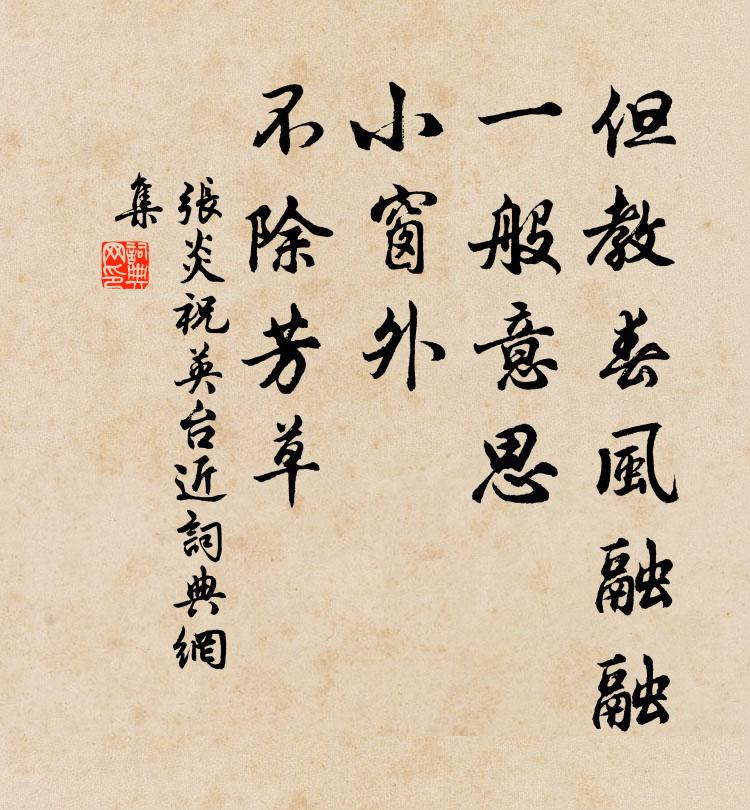 但教春風融融
一般意思
小窗外
不除芳草
張炎祝英台近詞典網
集
詞典
网印